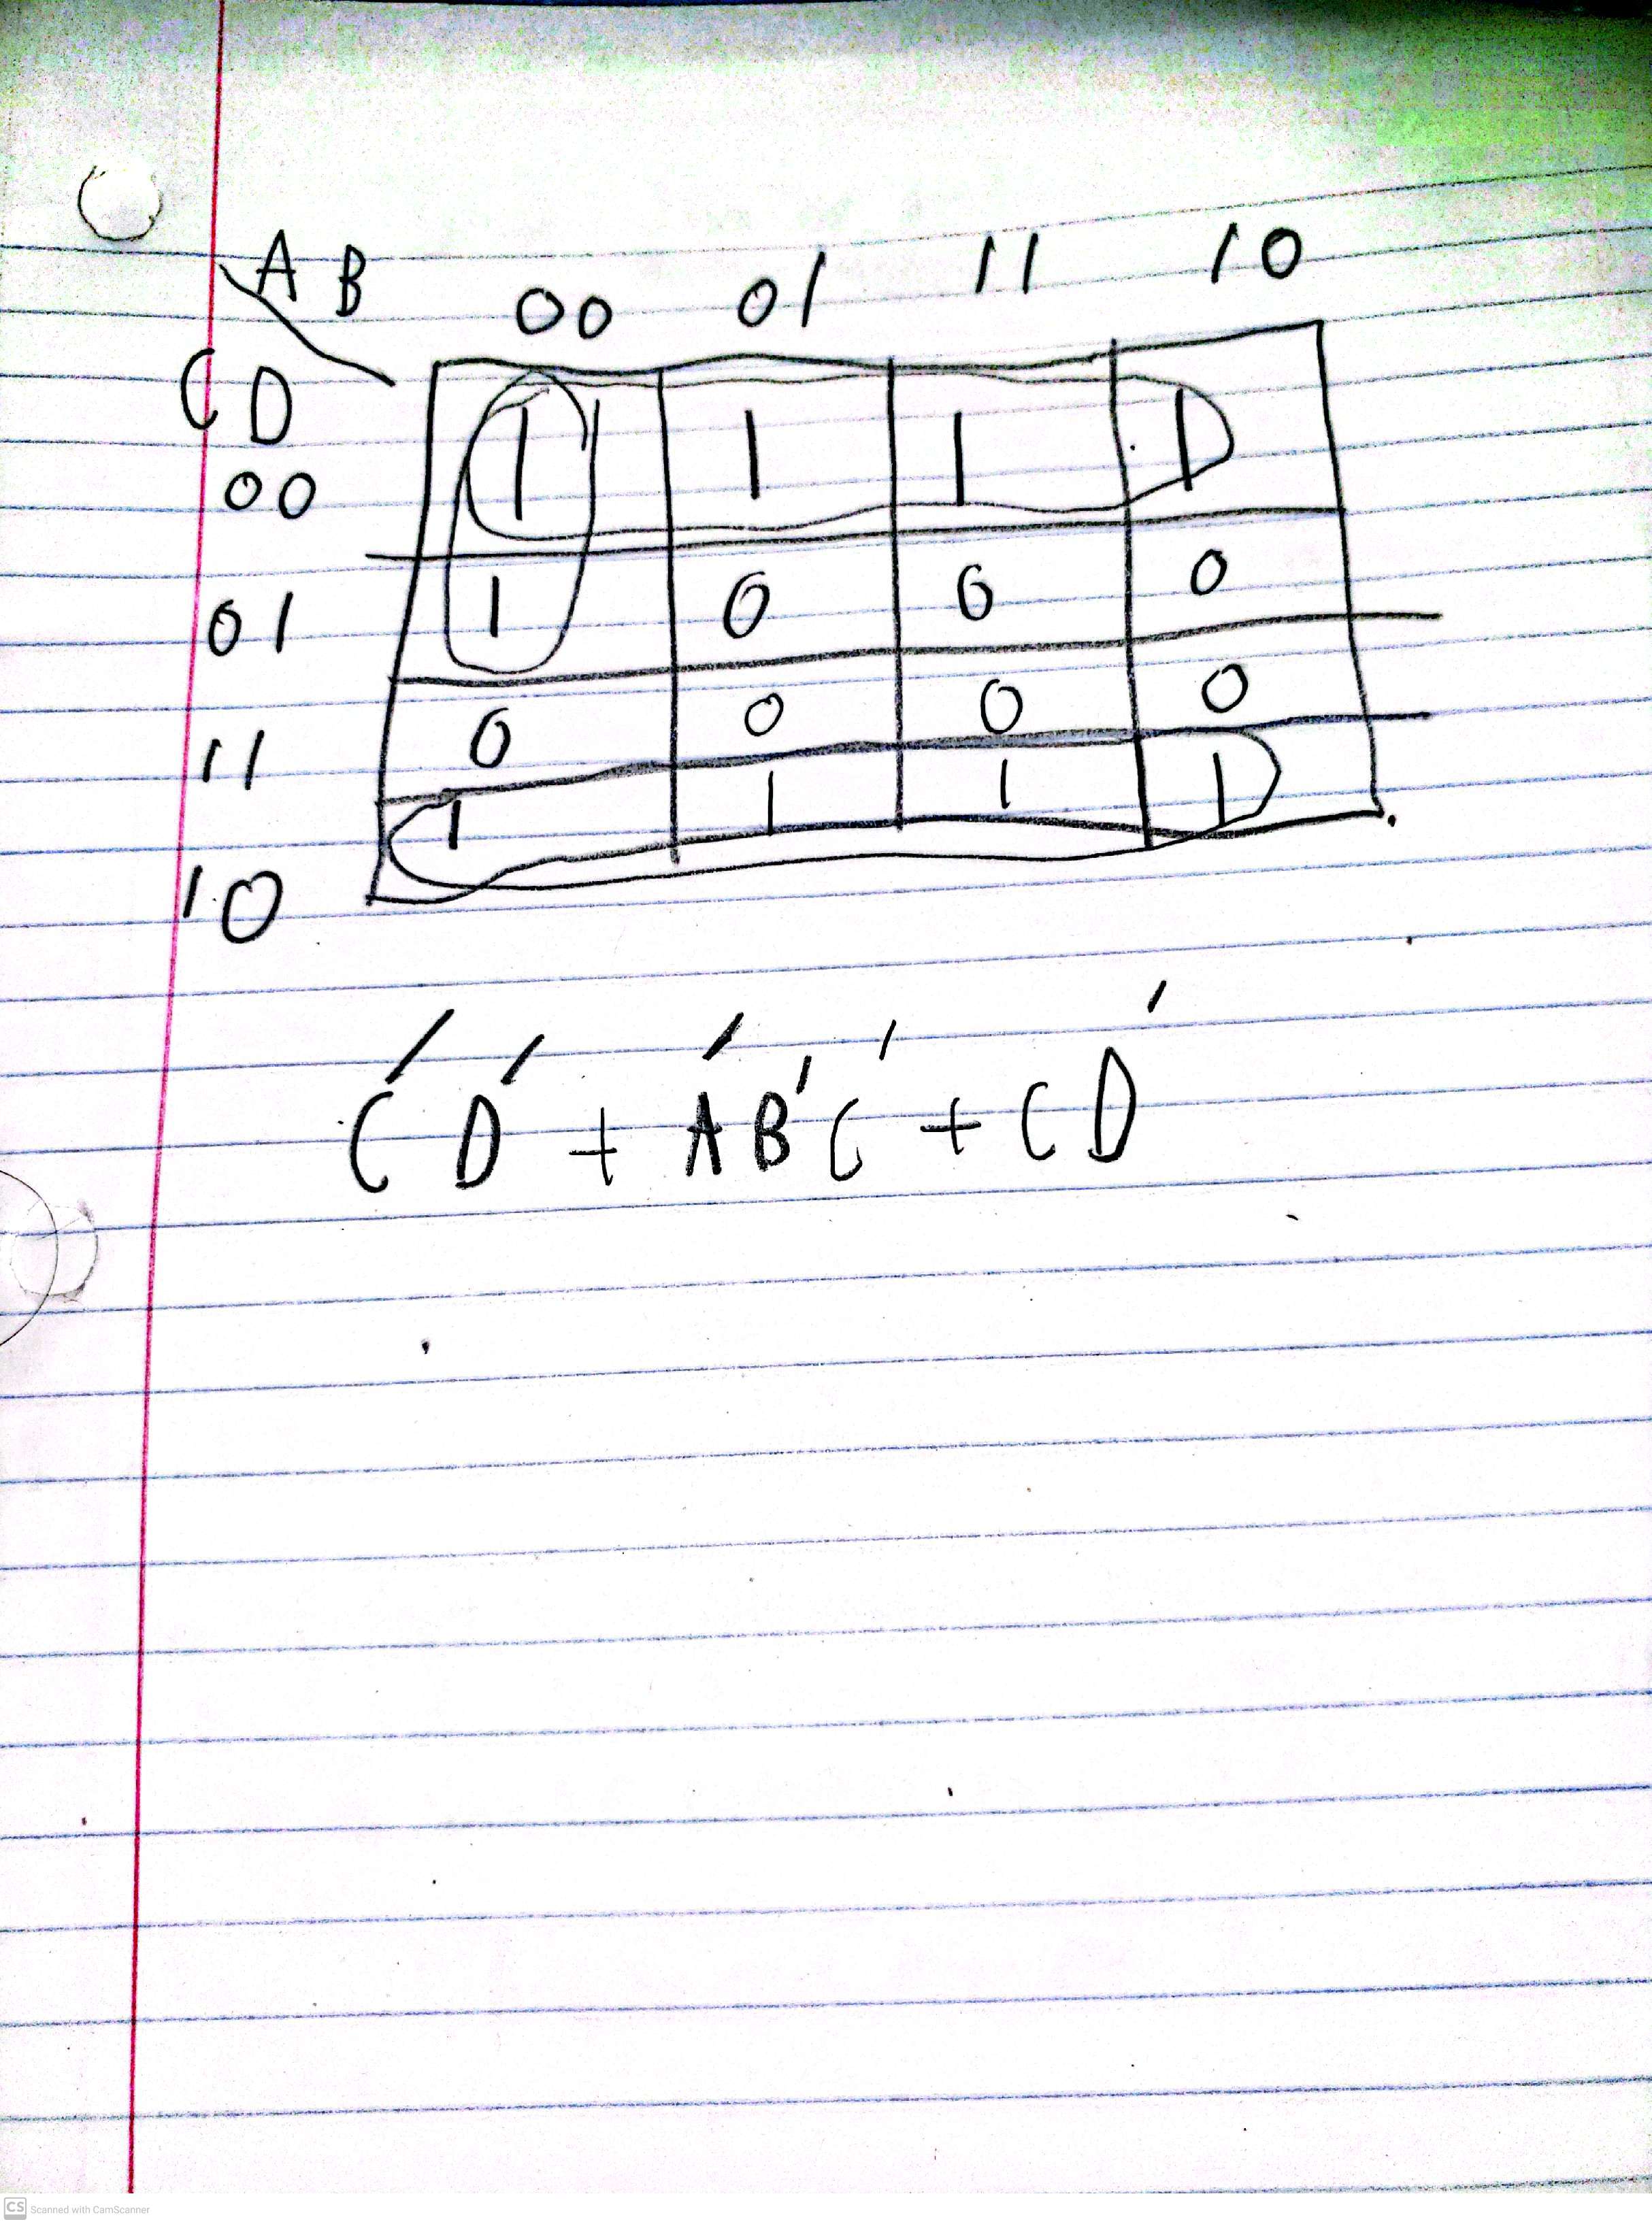 A B 00 01 11 10
C D
00 1 1 1 1
01 1 0 0 0
11 0 0 0 0
10 1 1 1 1
C' D' + A' B' C' + C D'
CS Scanned with CamScanner